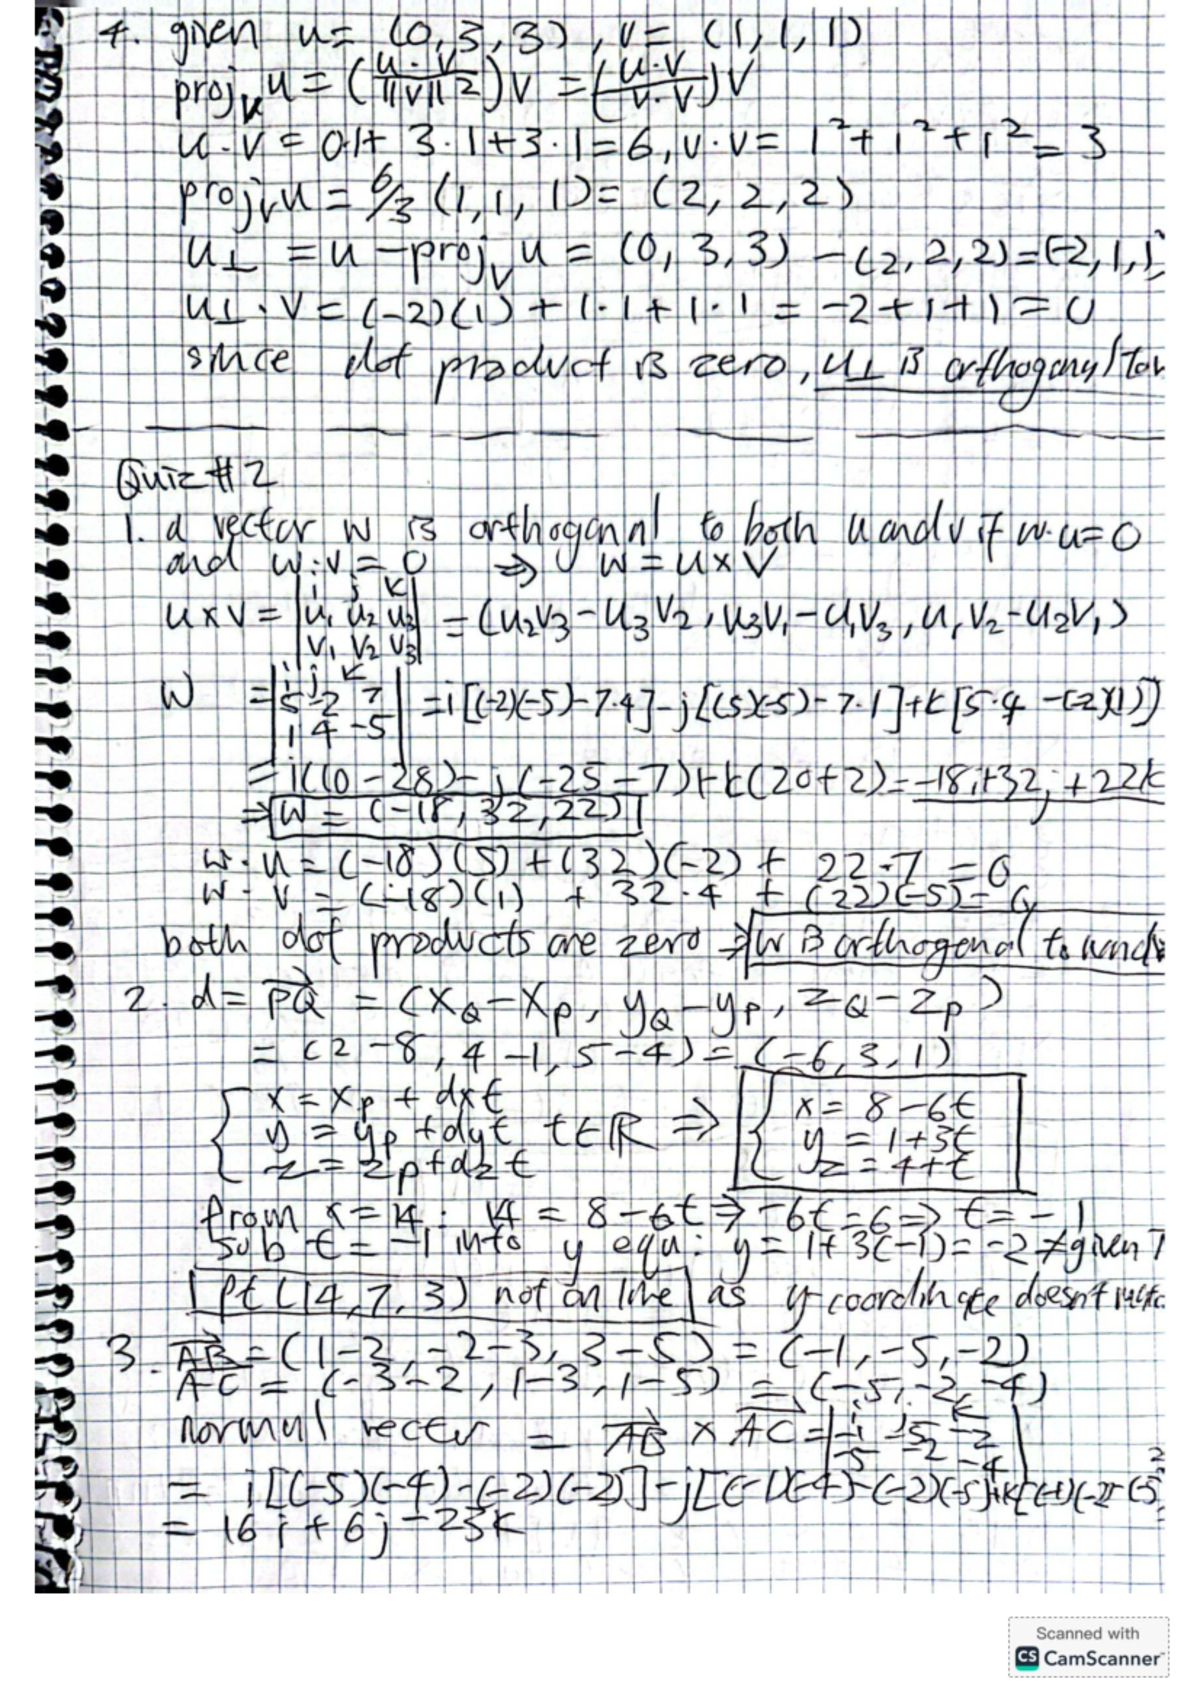 4. given u = (0, 3, 3), v = (1, 1, 1)
proj_v u = (u·v / ||v||²) v = (u·v / v·v) v
u·v = 0·1 + 3·1 + 3·1 = 6, v·v = 1² + 1² + 1² = 3
proj_v u = 6/3 (1, 1, 1) = (2, 2, 2)
u⊥ = u - proj_v u = (0, 3, 3) - (2, 2, 2) = (-2, 1, 1)
u⊥ · v = (-2)(1) + 1·1 + 1·1 = -2 + 1 + 1 = 0
since dot product is zero, u⊥ is orthogonal to v
Quiz #2
1. a vector w is orthogonal to both u and v if w·u = 0
and w·v = 0 ⇒ w = u × v
u × v = |i j k; u₁ u₂ u₃; v₁ v₂ v₃| = (u₂v₃ - u₃v₂, u₃v₁ - u₁v₃, u₁v₂ - u₂v₁)
w = |i j k; 5 -2 7; 1 4 -5| = i[(-2)(-5) - 7·4] - j[(5)(-5) - 7·1] + k[5·4 - (-2)(1)]
= i(10 - 28) - j(-25 - 7) + k(20 + 2) = -18i + 32j + 22k
⇒ w = (-18, 32, 22)
w·u = (-18)(5) + (32)(-2) + 22·7 = 0
w·v = (-18)(1) + 32·4 + (22)(-5) = 0
both dot products are zero ⇒ w is orthogonal to u and v
2. d = PQ = (x_Q - x_P, y_Q - y_P, z_Q - z_P)
= (2 - 8, 4 - 1, 5 - 4) = (-6, 3, 1)
{ x = x_P + dxt
y = y_P + dyt t ∈ ℝ ⇒
z = z_P + dzt
{ x = 8 - 6t
y = 1 + 3t
z = 4 + t
from x = 14: 14 = 8 - 6t ⇒ -6t = 6 ⇒ t = -1
sub t = -1 into y equ: y = 1 + 3(-1) = -2 ≠ given 7
pt (14, 7, 3) not on line as y coordinate doesn't
3. AB = (1 - 2, -2 - 3, 3 - 5) = (-1, -5, -2)
AC = (-3 - 2, 1 - 3, 1 - 5) = (-5, -2, -4)
normal vector = AB × AC = |i j k; -1 -5 -2; -5 -2 -4|
= i[(-5)(-4) - (-2)(-2)] - j[(-1)(-4) - (-2)(-5)] + k[(-1)(-2) - (-5)
= 16i + 6j - 23k
Scanned with
CS CamScanner